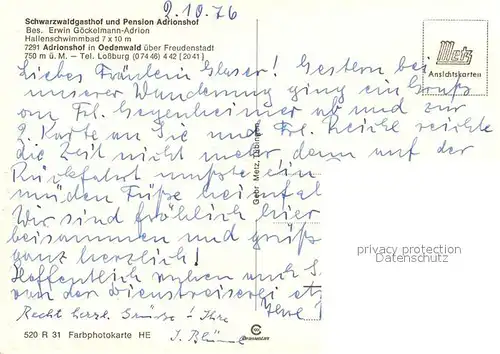 2.10.76
Schwarzwaldgasthof und Pension Adrionshof
Bes. Erwin Göckelmann-Adrion
Hallenschwimmbad 7 x 10 m
7291 Adrionshof in Oedenwald über Freudenstadt
750 m ü. M. – Tel. Loßburg (0 74 46) 4 42 [2041]
Metz
Ansichtskarten
Liebes Fräulein Glaser! Gestern bei
unserer Wanderung ging ein Gruß
an Frl. Gegenheimer ab und zur
2. Karte an Sie und Frl. reichte
die Zeit nicht mehr denn auf der
Rückfahrt mußten ein
müden Füße
Wir sind fröhlich hier
beisammen und grüß
ganz herzlich!
Hoffentlich ruhen auch S.
von der Dienstreiserei
Ihre
Recht herzl. Grüße! Ihre
I.
Gebr. Metz, Tübingen
privacy protection
Datenschutz
520 R 31 Farbphotokarte HE